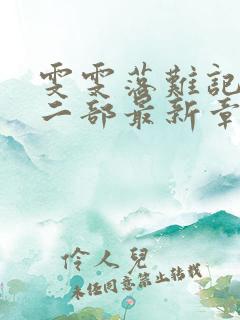 雯雯落難記
二部最新章
伶人兒
未经同意禁止转载